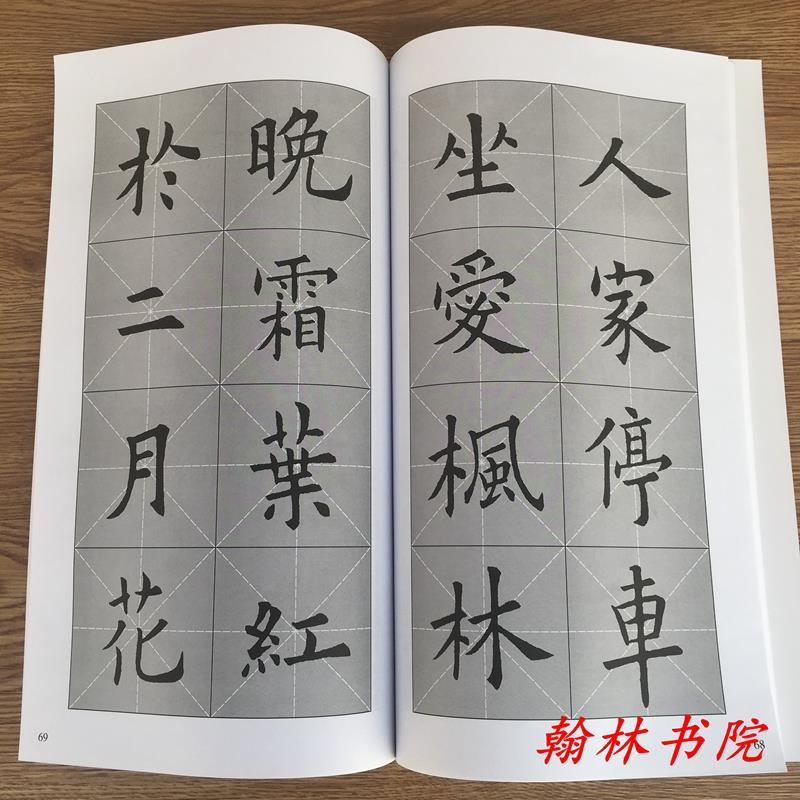 人家停車
坐愛楓林
晚霜葉紅
於二月花
68
69
翰林书院